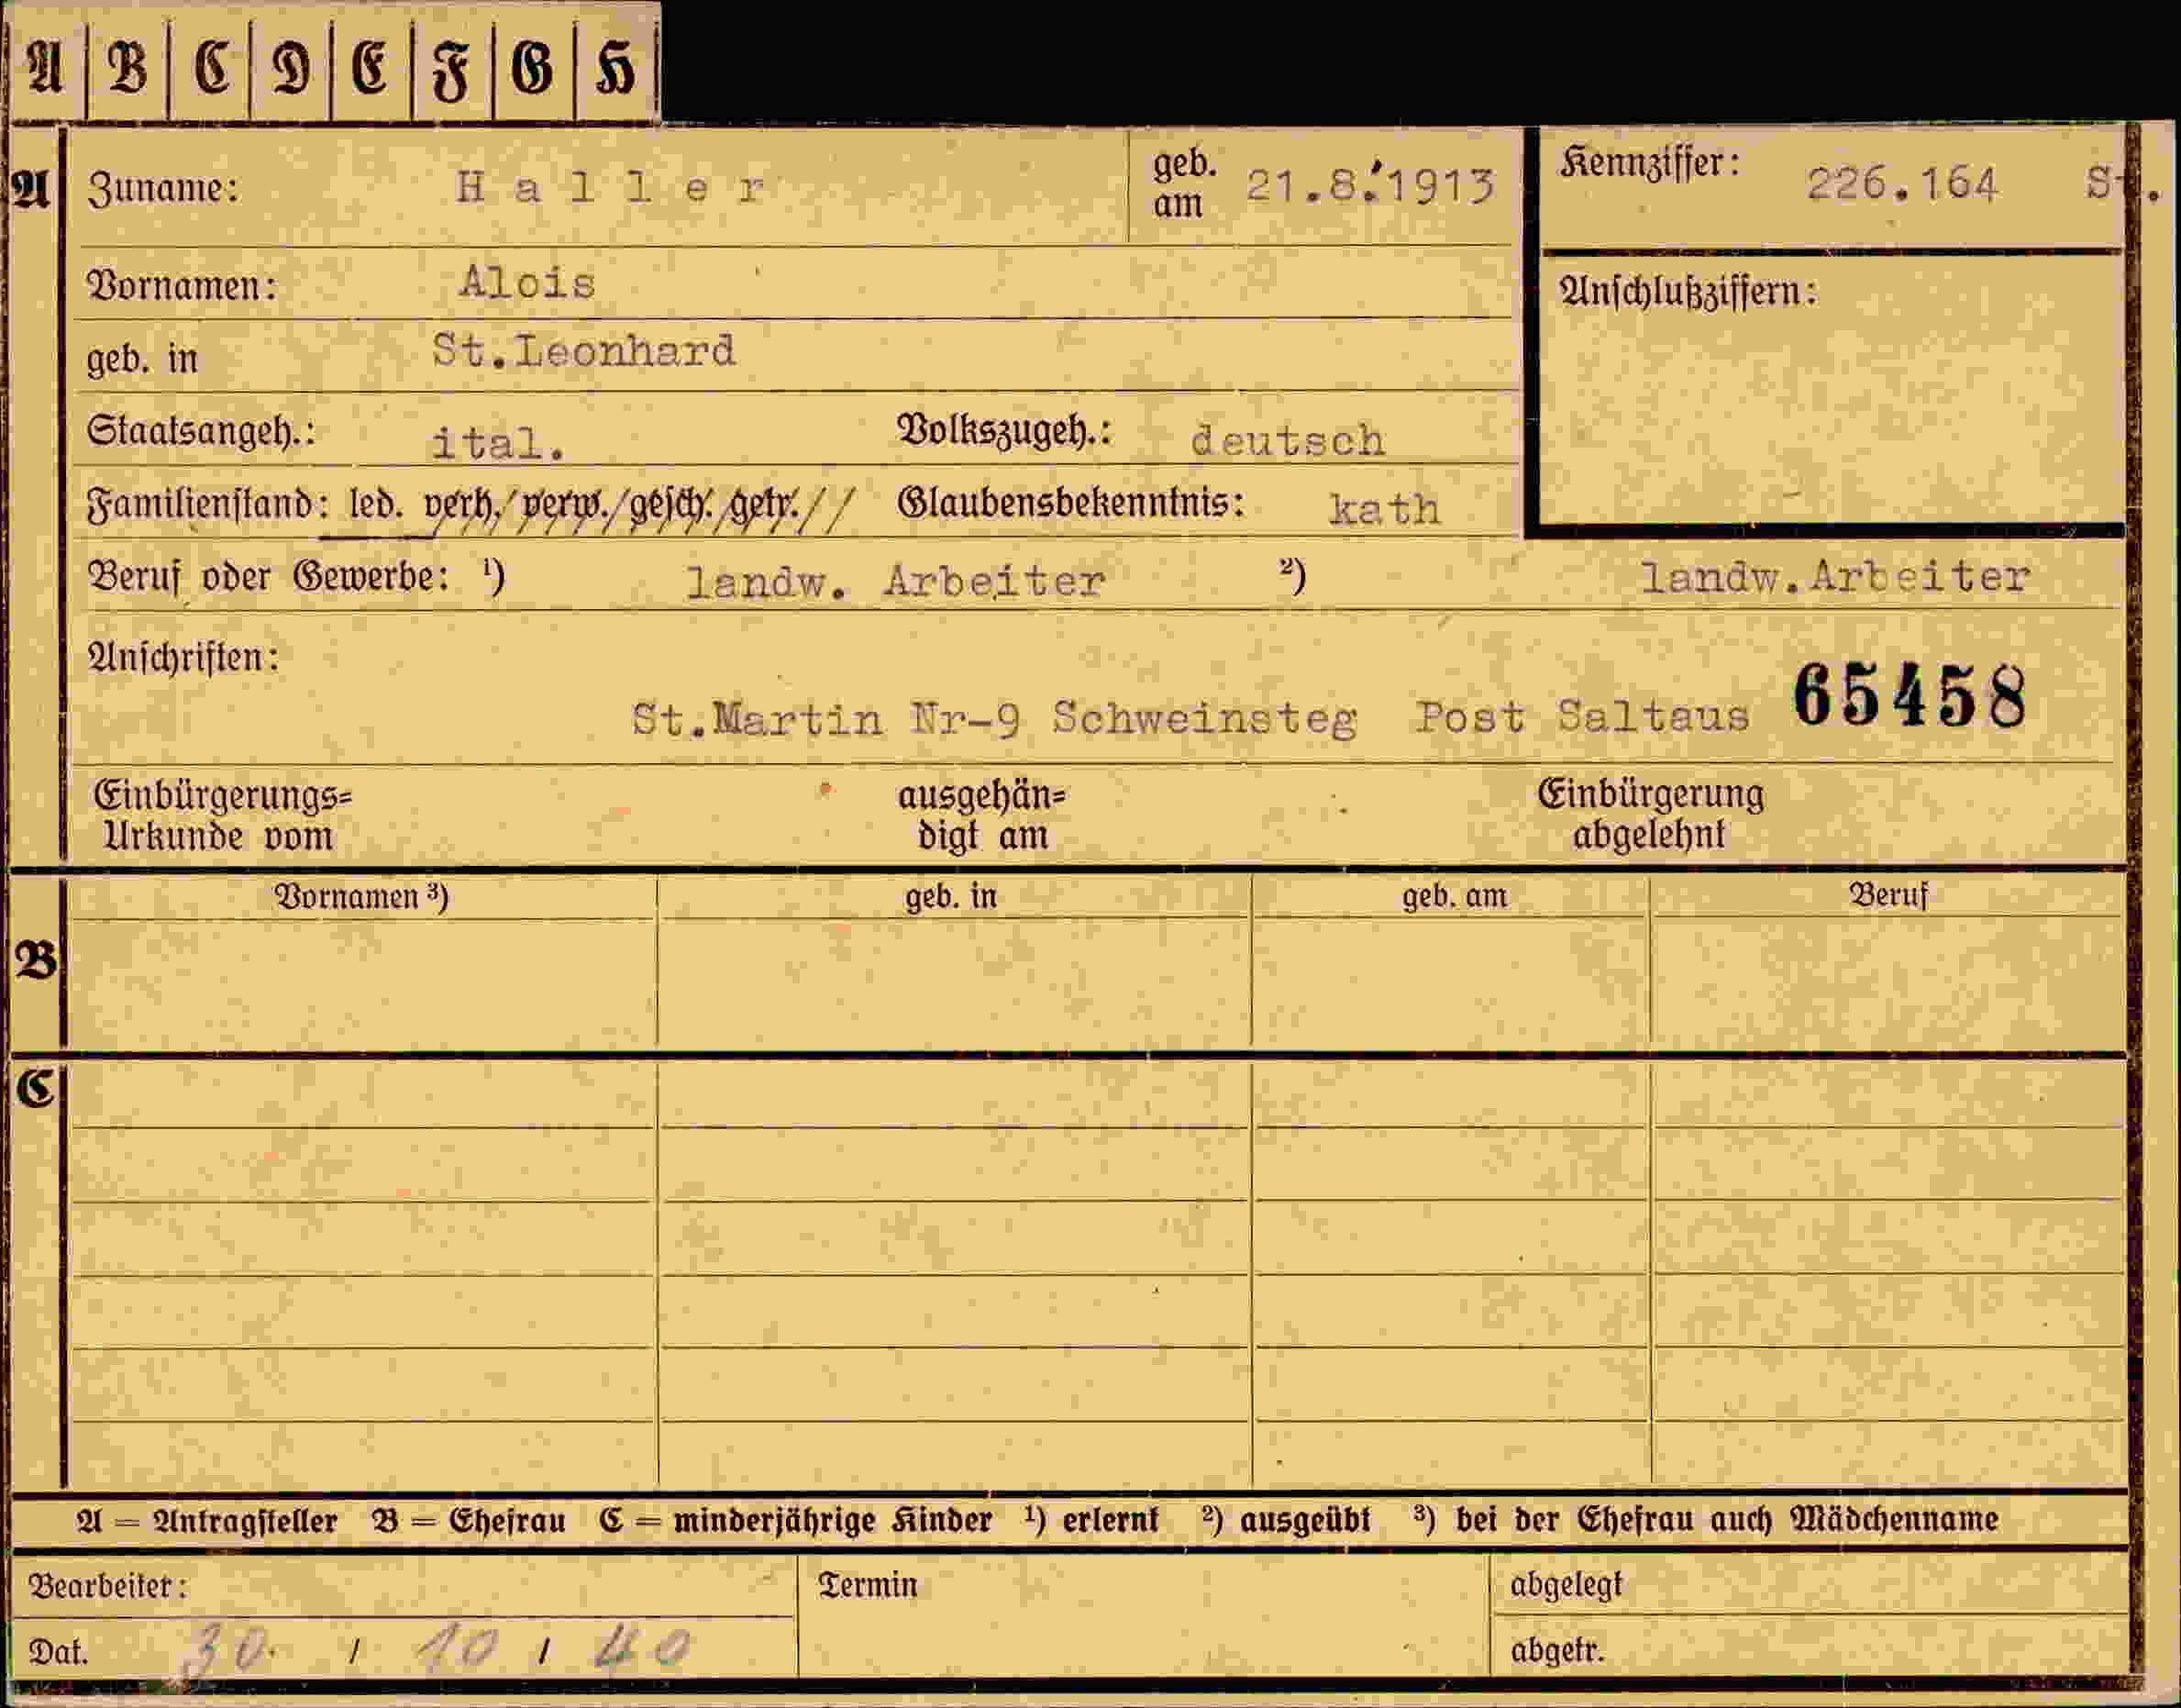 A B C D E F G H
A Zuname: Haller geb. am 21.8.1913 Kennziffer: 226.164 St.
Vornamen: Alois Anschlußziffern:
geb. in St.Leonhard
Staatsangeh.: ital. Volkszugeh.: deutsch
Familienstand: led. verh. verw. gesch. getr. Glaubensbekenntnis: kath
Beruf oder Gewerbe: ¹) landw. Arbeiter ²) landw.Arbeiter
Anschriften:
St.Martin Nr-9 Schweinsteg Post Saltaus 65458
Einbürgerungs= ausgehän= Einbürgerung
Urkunde vom digt am abgelehnt
B Vornamen ³) geb. in geb. am Beruf
C
A = Antragsteller B = Ehefrau C = minderjährige Kinder ¹) erlernt ²) ausgeübt ³) bei der Ehefrau auch Mädchenname
Bearbeiter: Termin abgelegt
Dat. 30. / 10 / 40 abgetr.